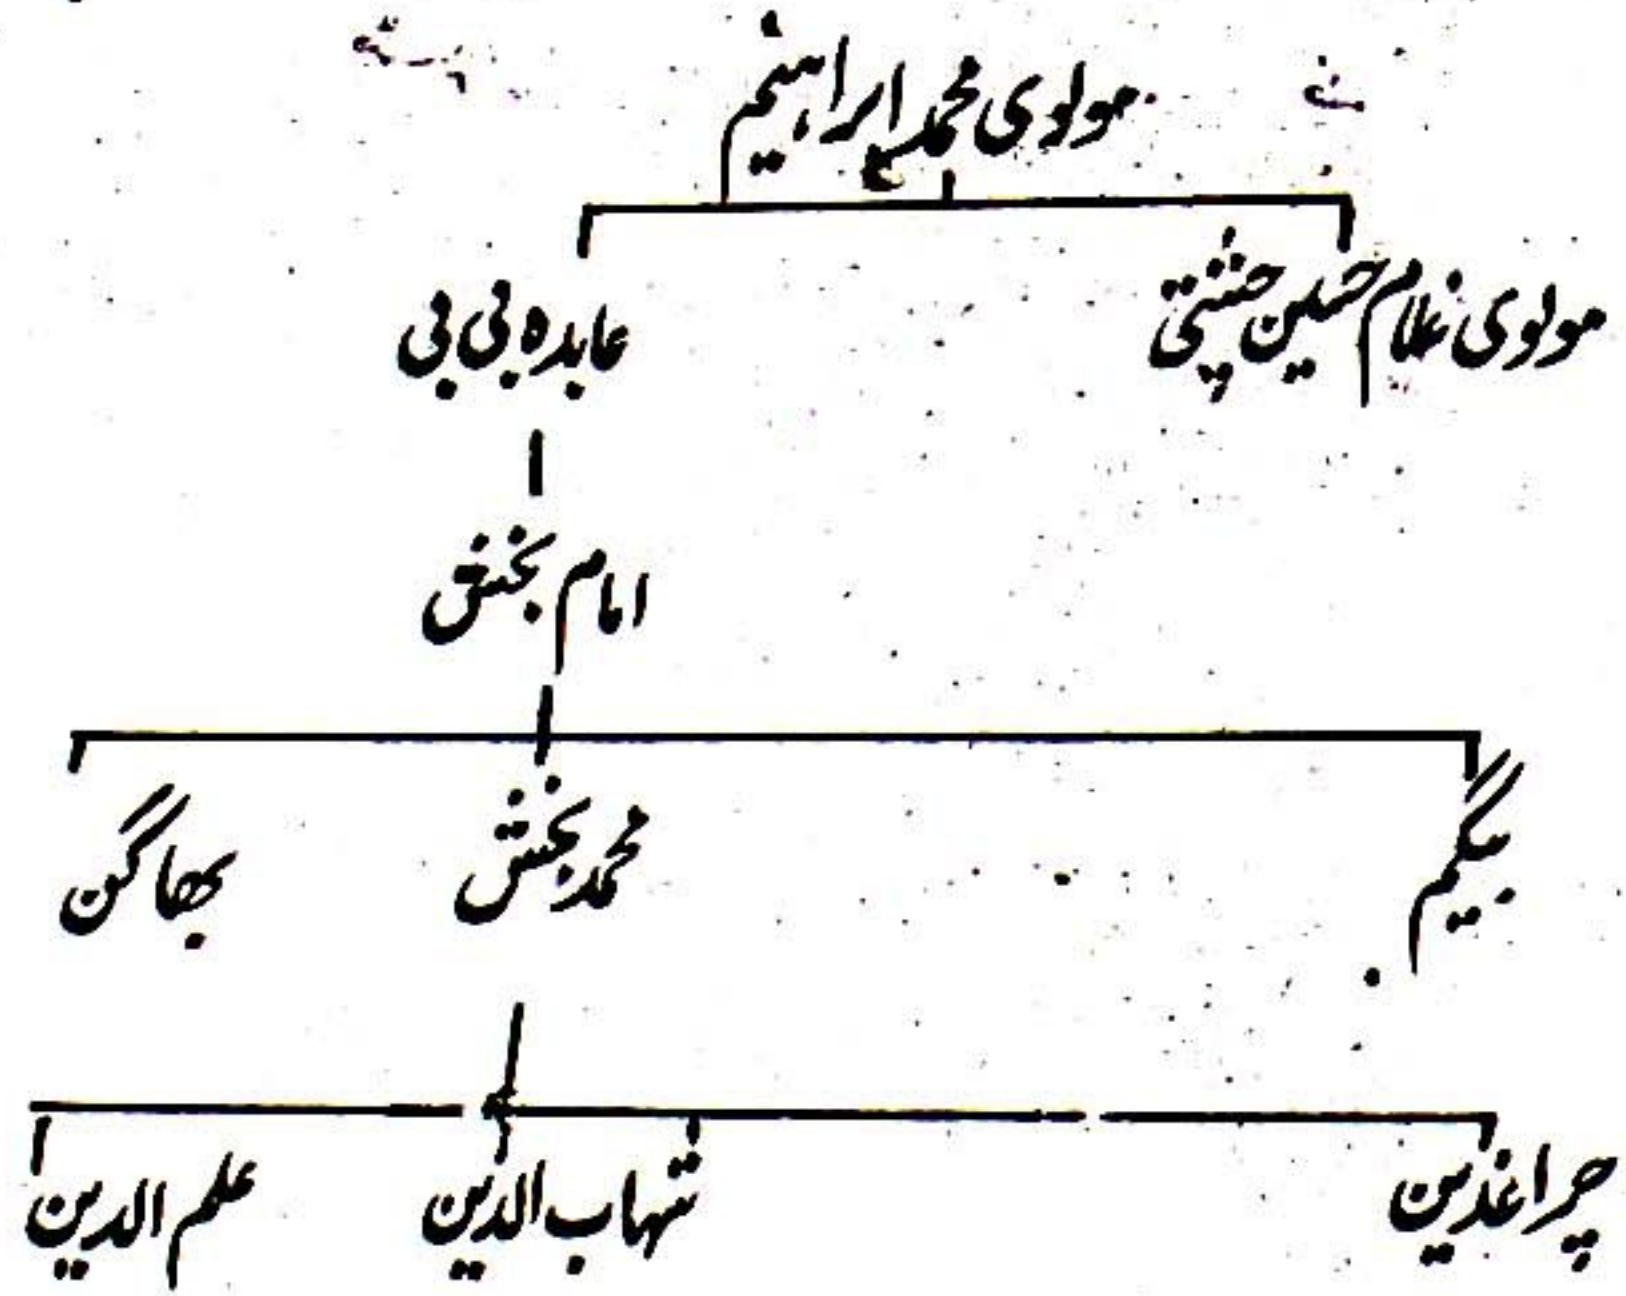 مولوی محمد ابراہیم
مولوی غلام حسین چشتی عابدہ بی بی
امام بخش
بیگم محمد بخش بھاگن
چراغدین شہاب الدین علم الدین